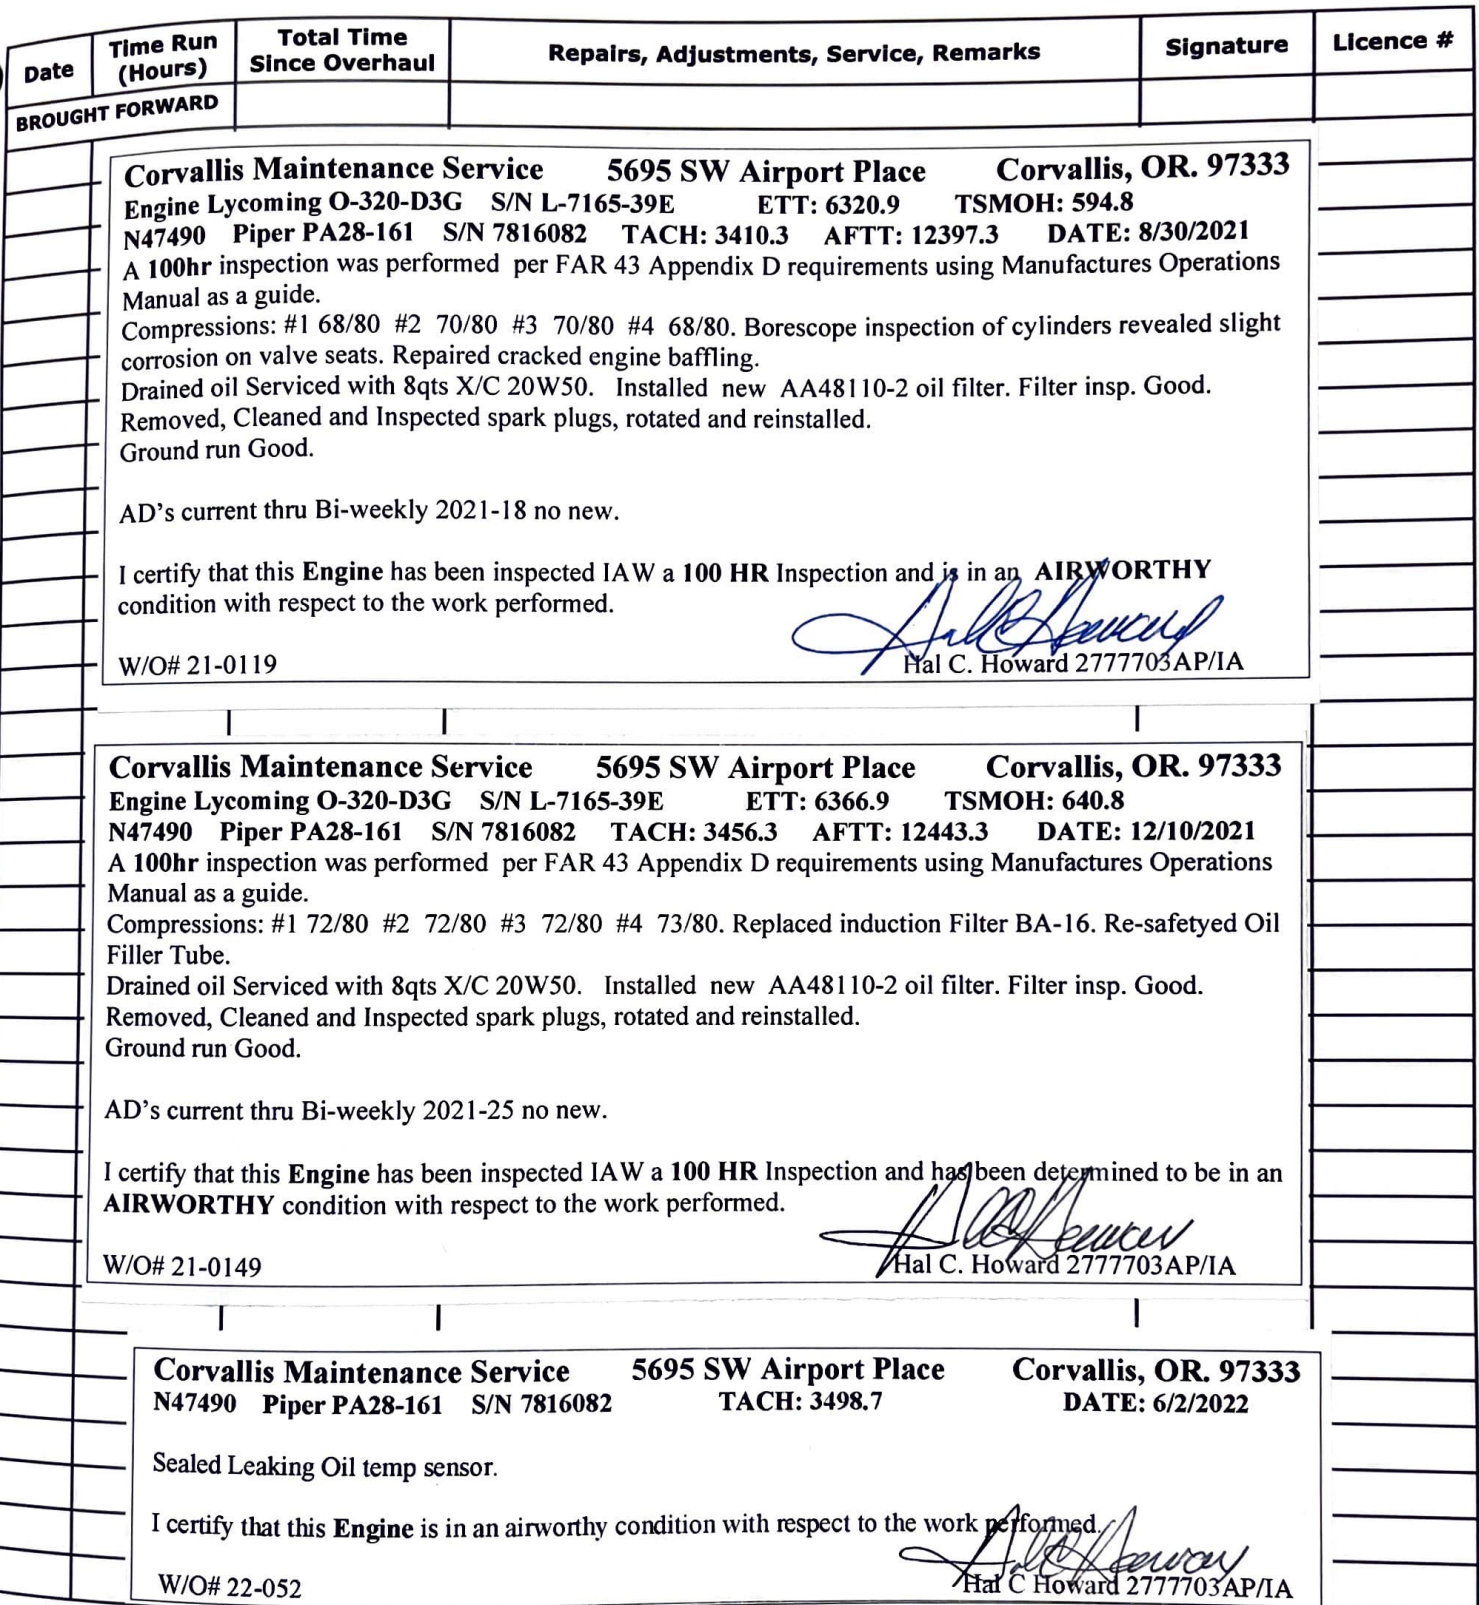 Date Time Run (Hours) Total Time Since Overhaul Repairs, Adjustments, Service, Remarks Signature Licence #
BROUGHT FORWARD
Corvallis Maintenance Service 5695 SW Airport Place Corvallis, OR. 97333
Engine Lycoming O-320-D3G S/N L-7165-39E ETT: 6320.9 TSMOH: 594.8
N47490 Piper PA28-161 S/N 7816082 TACH: 3410.3 AFTT: 12397.3 DATE: 8/30/2021
A 100hr inspection was performed per FAR 43 Appendix D requirements using Manufactures Operations
Manual as a guide.
Compressions: #1 68/80 #2 70/80 #3 70/80 #4 68/80. Borescope inspection of cylinders revealed slight
corrosion on valve seats. Repaired cracked engine baffling.
Drained oil Serviced with 8qts X/C 20W50. Installed new AA48110-2 oil filter. Filter insp. Good.
Removed, Cleaned and Inspected spark plugs, rotated and reinstalled.
Ground run Good.
AD's current thru Bi-weekly 2021-18 no new.
I certify that this Engine has been inspected IAW a 100 HR Inspection and is in an AIRWORTHY
condition with respect to the work performed.
Hal C Howard
W/O# 21-0119 Hal C. Howard 2777703AP/IA
Corvallis Maintenance Service 5695 SW Airport Place Corvallis, OR. 97333
Engine Lycoming O-320-D3G S/N L-7165-39E ETT: 6366.9 TSMOH: 640.8
N47490 Piper PA28-161 S/N 7816082 TACH: 3456.3 AFTT: 12443.3 DATE: 12/10/2021
A 100hr inspection was performed per FAR 43 Appendix D requirements using Manufactures Operations
Manual as a guide.
Compressions: #1 72/80 #2 72/80 #3 72/80 #4 73/80. Replaced induction Filter BA-16. Re-safetyed Oil
Filler Tube.
Drained oil Serviced with 8qts X/C 20W50. Installed new AA48110-2 oil filter. Filter insp. Good.
Removed, Cleaned and Inspected spark plugs, rotated and reinstalled.
Ground run Good.
AD's current thru Bi-weekly 2021-25 no new.
I certify that this Engine has been inspected IAW a 100 HR Inspection and has been determined to be in an
AIRWORTHY condition with respect to the work performed.
Hal C Howard
W/O# 21-0149 Hal C. Howard 2777703AP/IA
Corvallis Maintenance Service 5695 SW Airport Place Corvallis, OR. 97333
N47490 Piper PA28-161 S/N 7816082 TACH: 3498.7 DATE: 6/2/2022
Sealed Leaking Oil temp sensor.
I certify that this Engine is in an airworthy condition with respect to the work performed.
Hal C Howard
W/O# 22-052 Hal C Howard 2777703AP/IA